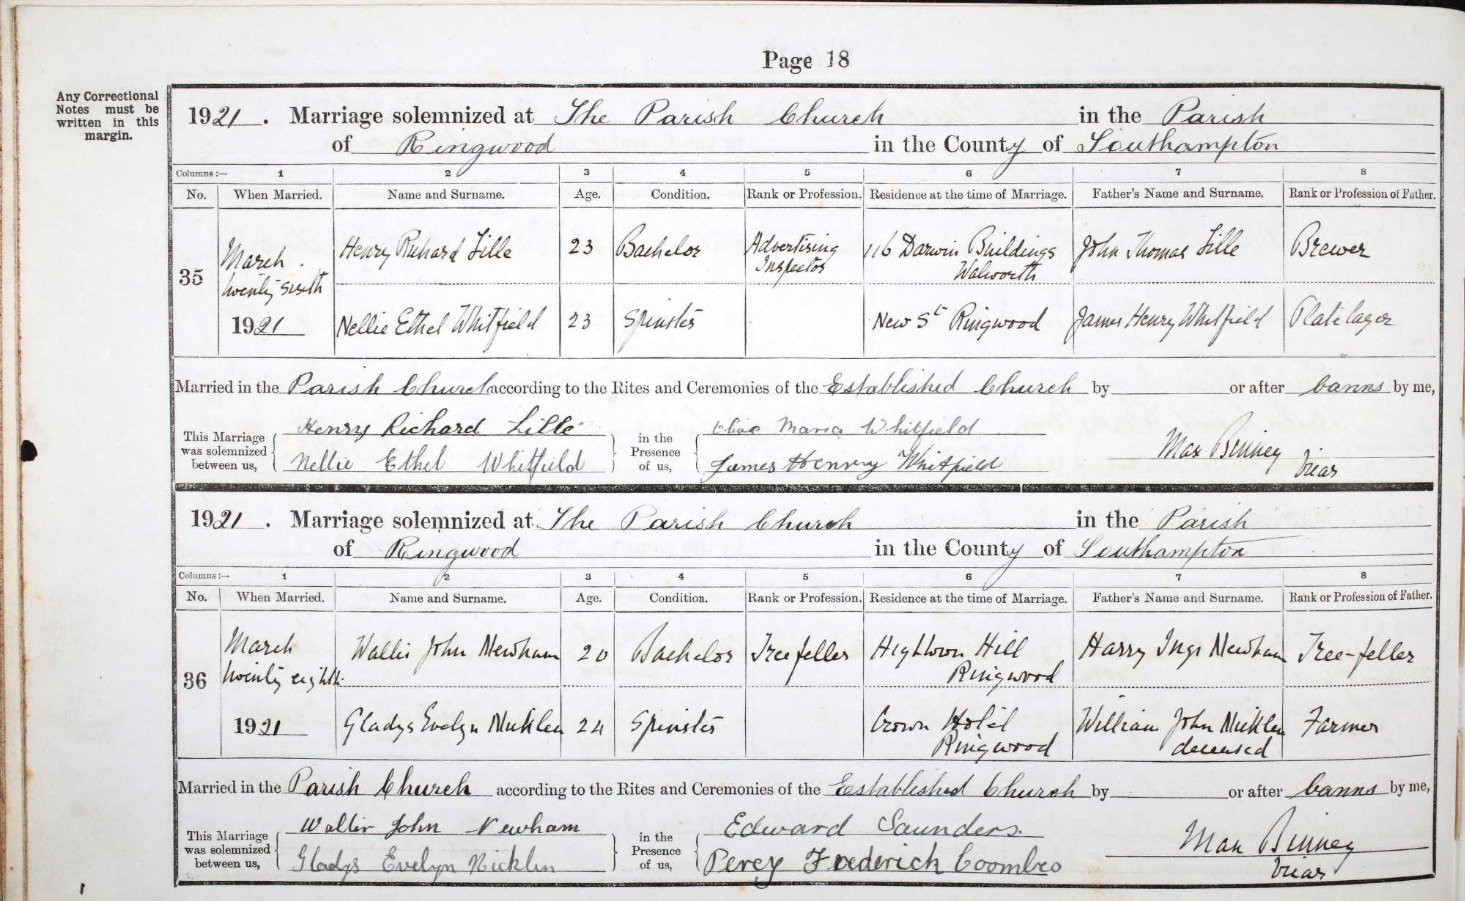 Page 18
Any Correctional
Notes must be
written in this
margin.
1921. Marriage solemnized at The Parish Church in the Parish
of Ringwood in the County of Southampton
Columns:— 1 2 3 4 5 6 7 8
No. When Married. Name and Surname. Age. Condition. Rank or Profession. Residence at the time of Marriage. Father's Name and Surname. Rank or Profession of Father.
35 March twenty sixth 1921
Henry Richard Lille 23 Bachelor Advertising Inspector 116 Darwin Buildings Walworth John Thomas Lille Brewer
Nellie Ethel Whitfield 23 Spinster New St Ringwood James Henry Whitfield Platelayer
Married in the Parish Church according to the Rites and Ceremonies of the Established Church by or after banns by me,
This Marriage was solemnized between us,
Henry Richard Lille
Nellie Ethel Whitfield
in the Presence of us,
Olive Maria Whitfield
James Henry Whitfield
Max Binney
Vicar
1921. Marriage solemnized at The Parish Church in the Parish
of Ringwood in the County of Southampton
Columns:— 1 2 3 4 5 6 7 8
No. When Married. Name and Surname. Age. Condition. Rank or Profession. Residence at the time of Marriage. Father's Name and Surname. Rank or Profession of Father.
36 March twenty eighth 1921
Walter John Newham 20 Bachelor Treefeller Hightown Hill Ringwood Harry Ings Newham Tree-feller
Gladys Evelyn Nicklen 24 Spinster Crown Hotel Ringwood William John Nicklen deceased Farmer
Married in the Parish Church according to the Rites and Ceremonies of the Established Church by or after banns by me,
This Marriage was solemnized between us,
Walter John Newham
Gladys Evelyn Nicklin
in the Presence of us,
Edward Saunders.
Percy Frederick Coombes
Max Binney
Vicar